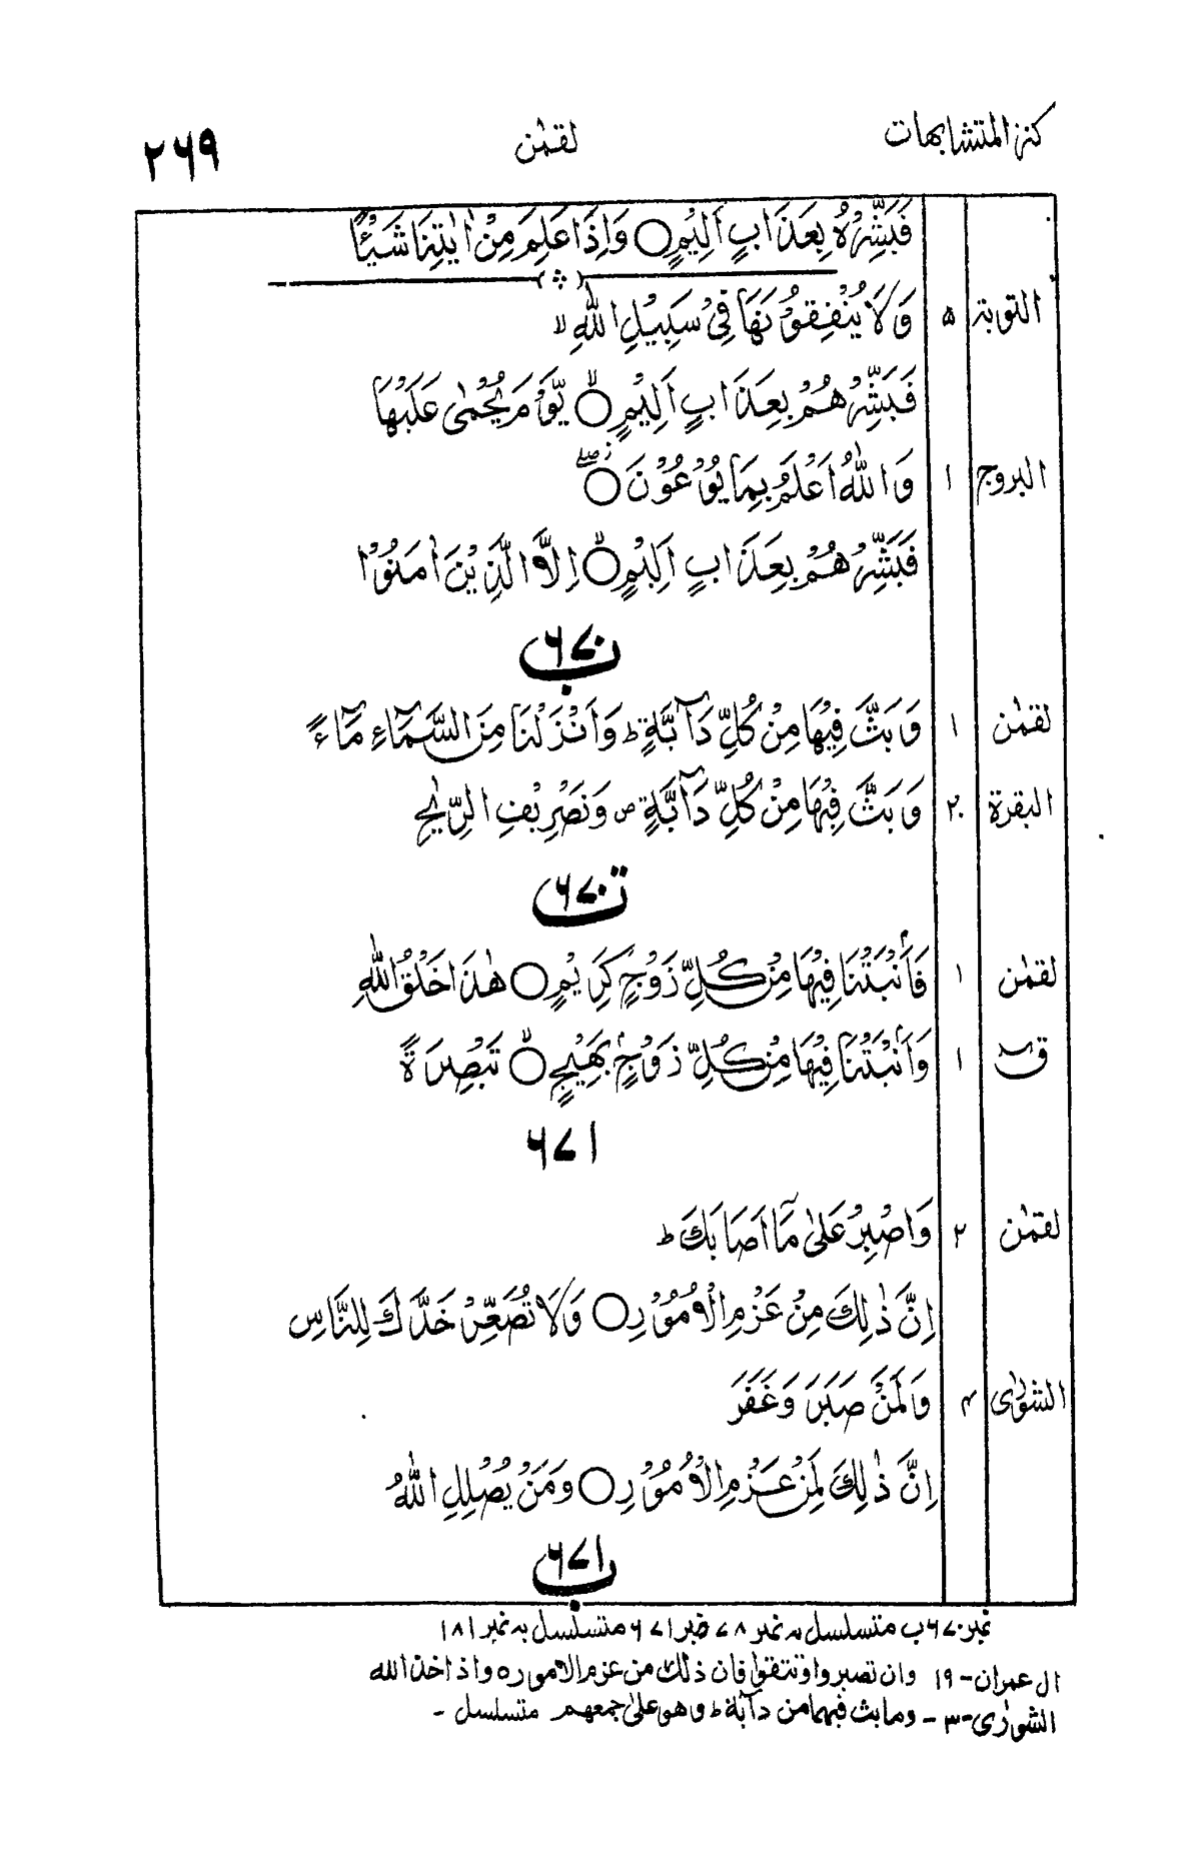 كنز المتشابهات لقمٰن ٢٦٩
فَبَشِّرْهُ بِعَذَابٍ اَلِيْمٍ ○ وَاِذَا عَلِمَ مِنْ اٰيٰتِنَا شَيْئًا
التوبة ٥ وَلَا يُنْفِقُوْنَهَا فِيْ سَبِيْلِ اللّٰهِ ۙ
فَبَشِّرْهُمْ بِعَذَابٍ اَلِيْمٍ ○ۙ يَّوْمَ يُحْمٰى عَلَيْهَا
البروج ١ وَاللّٰهُ اَعْلَمُ بِمَا يُوْعُوْنَ ○ۖز
فَبَشِّرْهُمْ بِعَذَابٍ اَلِيْمٍ ○ۙ اِلَّا الَّذِيْنَ اٰمَنُوْا
٦٧٠ ب
لقمٰن ١ وَبَثَّ فِيْهَا مِنْ كُلِّ دَآبَّةٍ ط وَاَنْزَلْنَا مِنَ السَّمَآءِ مَآءً
البقرة ٢٠ وَبَثَّ فِيْهَا مِنْ كُلِّ دَآبَّةٍ ص وَتَصْرِيْفِ الرِّيٰحِ
٦٧٠ ت
لقمٰن ١ فَاَنْۢبَتْنَا فِيْهَا مِنْ كُلِّ زَوْجٍ كَرِيْمٍ ○ هٰذَا خَلْقُ اللّٰهِ
قٓ ١ وَاَنْۢبَتْنَا فِيْهَا مِنْ كُلِّ زَوْجٍۭ بَهِيْجٍ ○ۙ تَبْصِرَةً
٦٧١
لقمٰن ٢ وَاصْبِرْ عَلٰى مَآ اَصَابَكَ ط
اِنَّ ذٰلِكَ مِنْ عَزْمِ الْاُمُوْرِ ○ وَلَا تُصَعِّرْ خَدَّكَ لِلنَّاسِ
الشورٰى ٤ وَلَمَنْ صَبَرَ وَغَفَرَ
اِنَّ ذٰلِكَ لَمِنْ عَزْمِ الْاُمُوْرِ ○ وَمَنْ يُّضْلِلِ اللّٰهُ
٦٧١ ب
نمبر ٦٧٠ ب متسلسل بہ نمبر ٧٨ نمبر ٦٧١ متسلسل بہ نمبر ١٨١
ال عمران - ١٩ وان تصبروا وتتقوا فان ذلك من عزم الامور ه واذ اخذ الله
الشورٰى - ٣ - وما بث فيهما من دآبة ط وهو علىٰ جمعهم متسلسل -